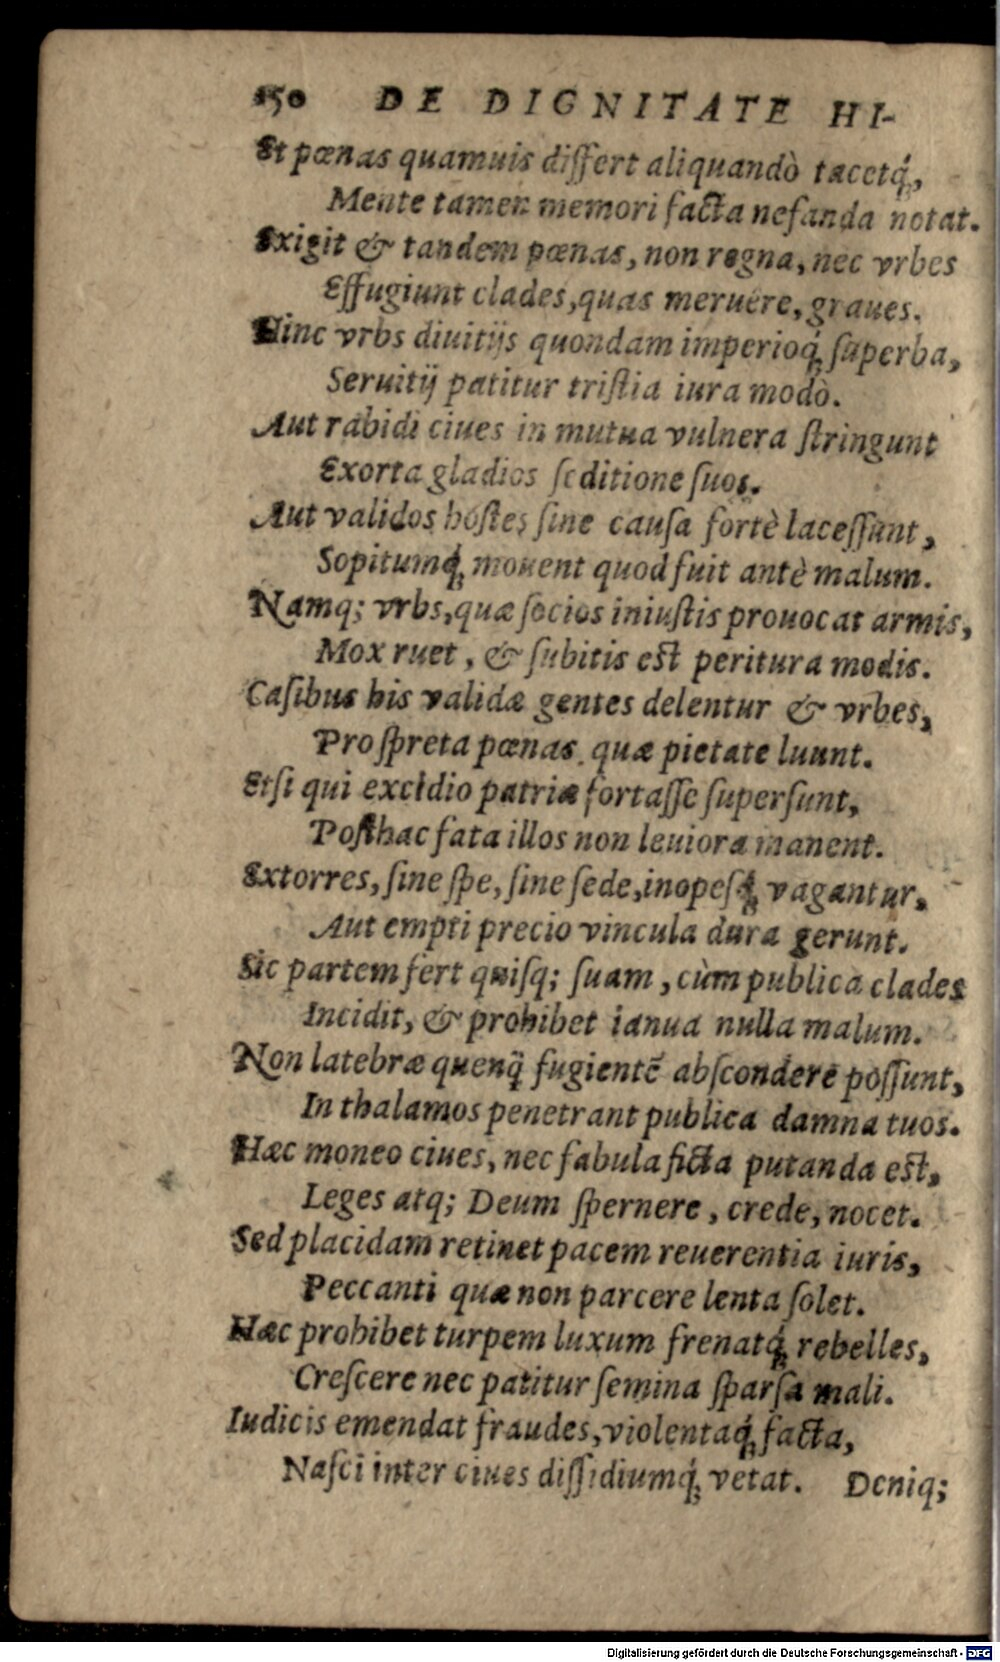 150 DE DIGNITATE HI-
Et pœnas quamuis differt aliquandò tacetq́;,
Mente tamen memori facta nefanda notat.
Exigit & tandem pœnas, non regna, nec vrbes
Effugiunt clades, quas meruêre, graues.
Hinc vrbs diuitijs quondam imperioq́; superba,
Seruitij patitur tristia iura modò.
Aut rabidi ciues in mutua vulnera stringunt
Exorta gladios seditione suos.
Aut validos hostes sine causa fortè lacessunt,
Sopitumq́; mouent quod fuit antè malum.
Namq; vrbs, quæ socios iniustis prouocat armis,
Mox ruet, & subitis est peritura modis.
Casibus his validæ gentes delentur & vrbes,
Pro spreta pœnas quæ pietate luunt.
Etsi qui excidio patriæ fortasse supersunt,
Posthac fata illos non leuiora manent.
Extorres, sine spe, sine sede, inopesq́; vagantur,
Aut empti precio vincula dura gerunt.
Sic partem fert quisq; suam, cùm publica clades
Incidit, & prohibet ianua nulla malum.
Non latebræ quenq̃ fugientẽ abscondere possunt,
In thalamos penetrant publica damna tuos.
Hæc moneo ciues, nec fabula ficta putanda est,
Leges atq; Deum spernere, crede, nocet.
Sed placidam retinet pacem reuerentia iuris,
Peccanti quæ non parcere lenta solet.
Hæc prohibet turpem luxum frenatq́; rebelles,
Crescere nec patitur semina sparsa mali.
Iudicis emendat fraudes, violentaq́; facta,
Nasci inter ciues dissidiumq́; vetat. Deniq;
Digitalisierung gefördert durch die Deutsche Forschungsgemeinschaft - DFG